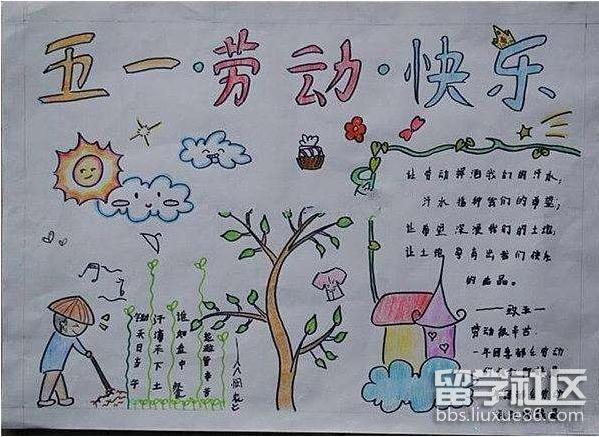 五一·劳动·快乐
让劳动挥洒我们的汗水;
汗水播种我们的希望;
让希望我们的土地;
让土地孕育出我们快乐
的成品。
——致五一
劳动最辛苦
一年四季都在劳动
锄禾日当午
汗滴禾下土
谁知盘中餐
粒粒皆辛苦
——《悯农》
留学社区
bbs.liuxue86.com